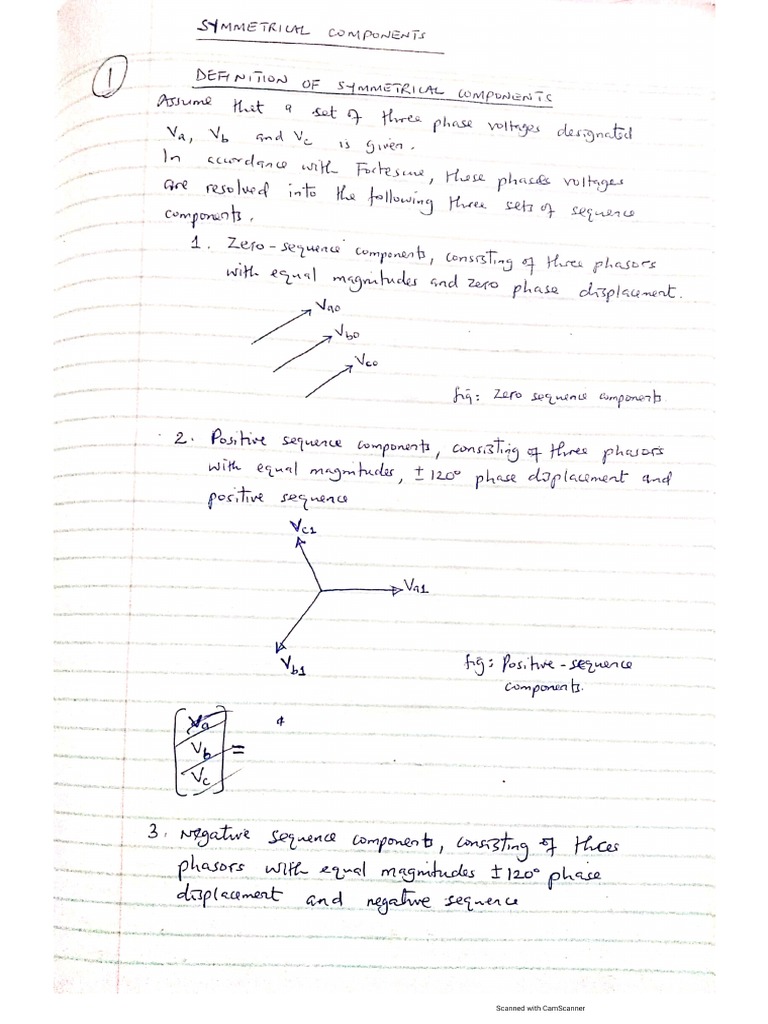 SYMMETRICAL COMPONENTS
1
DEFINITION OF SYMMETRICAL COMPONENTS
Assume that a set of three phase voltages designated
Va, Vb and Vc is given.
In accordance with Fortescue, these phases voltages
are resolved into the following three sets of sequence
components.
1. Zero-sequence components, consisting of three phasors
with equal magnitudes and zero phase displacement.
Va0
Vb0
Vc0
fig: Zero sequence components.
2. Positive sequence components, consisting of three phasors
with equal magnitudes, ±120° phase displacement and
positive sequence
Vc1
Va1
Vb1
fig: Positive-sequence
components.
Va
Vb =
Vc
3. Negative sequence components, consisting of three
phasors with equal magnitudes ±120° phase
displacement and negative sequence
Scanned with CamScanner